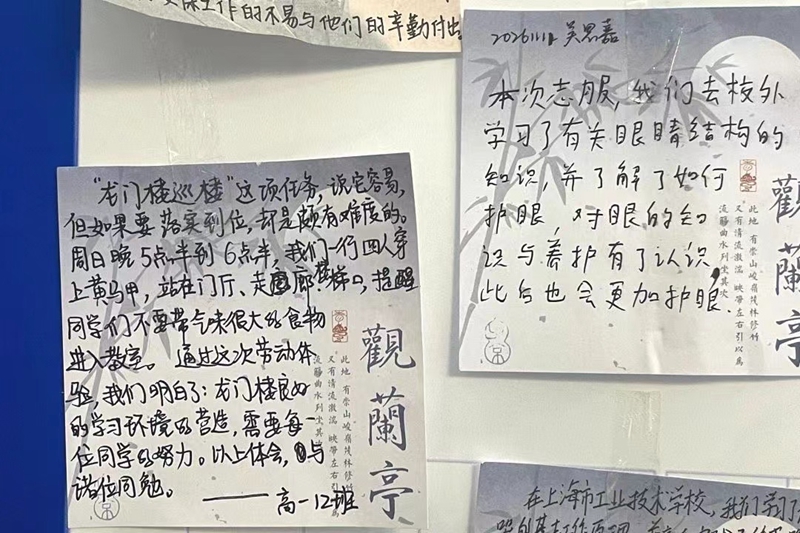 保工作的不易与他们的辛勤付出
"龙门楼巡楼"这项任务,说它容易,
但如果要落实到位,却是颇有难度的。
周日晚5点半到6点半,我们一行四人穿
上黄马甲,站在门厅、走廊楼梯口,提醒
同学们不要带气味很大的食物
进入教室。通过这次劳动体
验,我们明白了:龙门楼良好
的学习环境的营造,需要每一
位同学的努力。以上体会,与
诸位同勉。
——高一12班
觀蘭亭
此地有崇山峻嶺茂林修竹
又有清流激湍映帶左右引以為
流觴曲水列坐其次
吴思嘉
本次志服,我们去校外
学习了有关眼睛结构的
知识,并了解了如何
护眼,对眼的知
识与养护有了认识
此后也会更加护眼.
觀蘭亭
此地有崇山峻嶺茂林修竹
又有清流激湍映帶左右引以為
流觴曲水列坐其次
在上海市工业技术学校,我们学习了